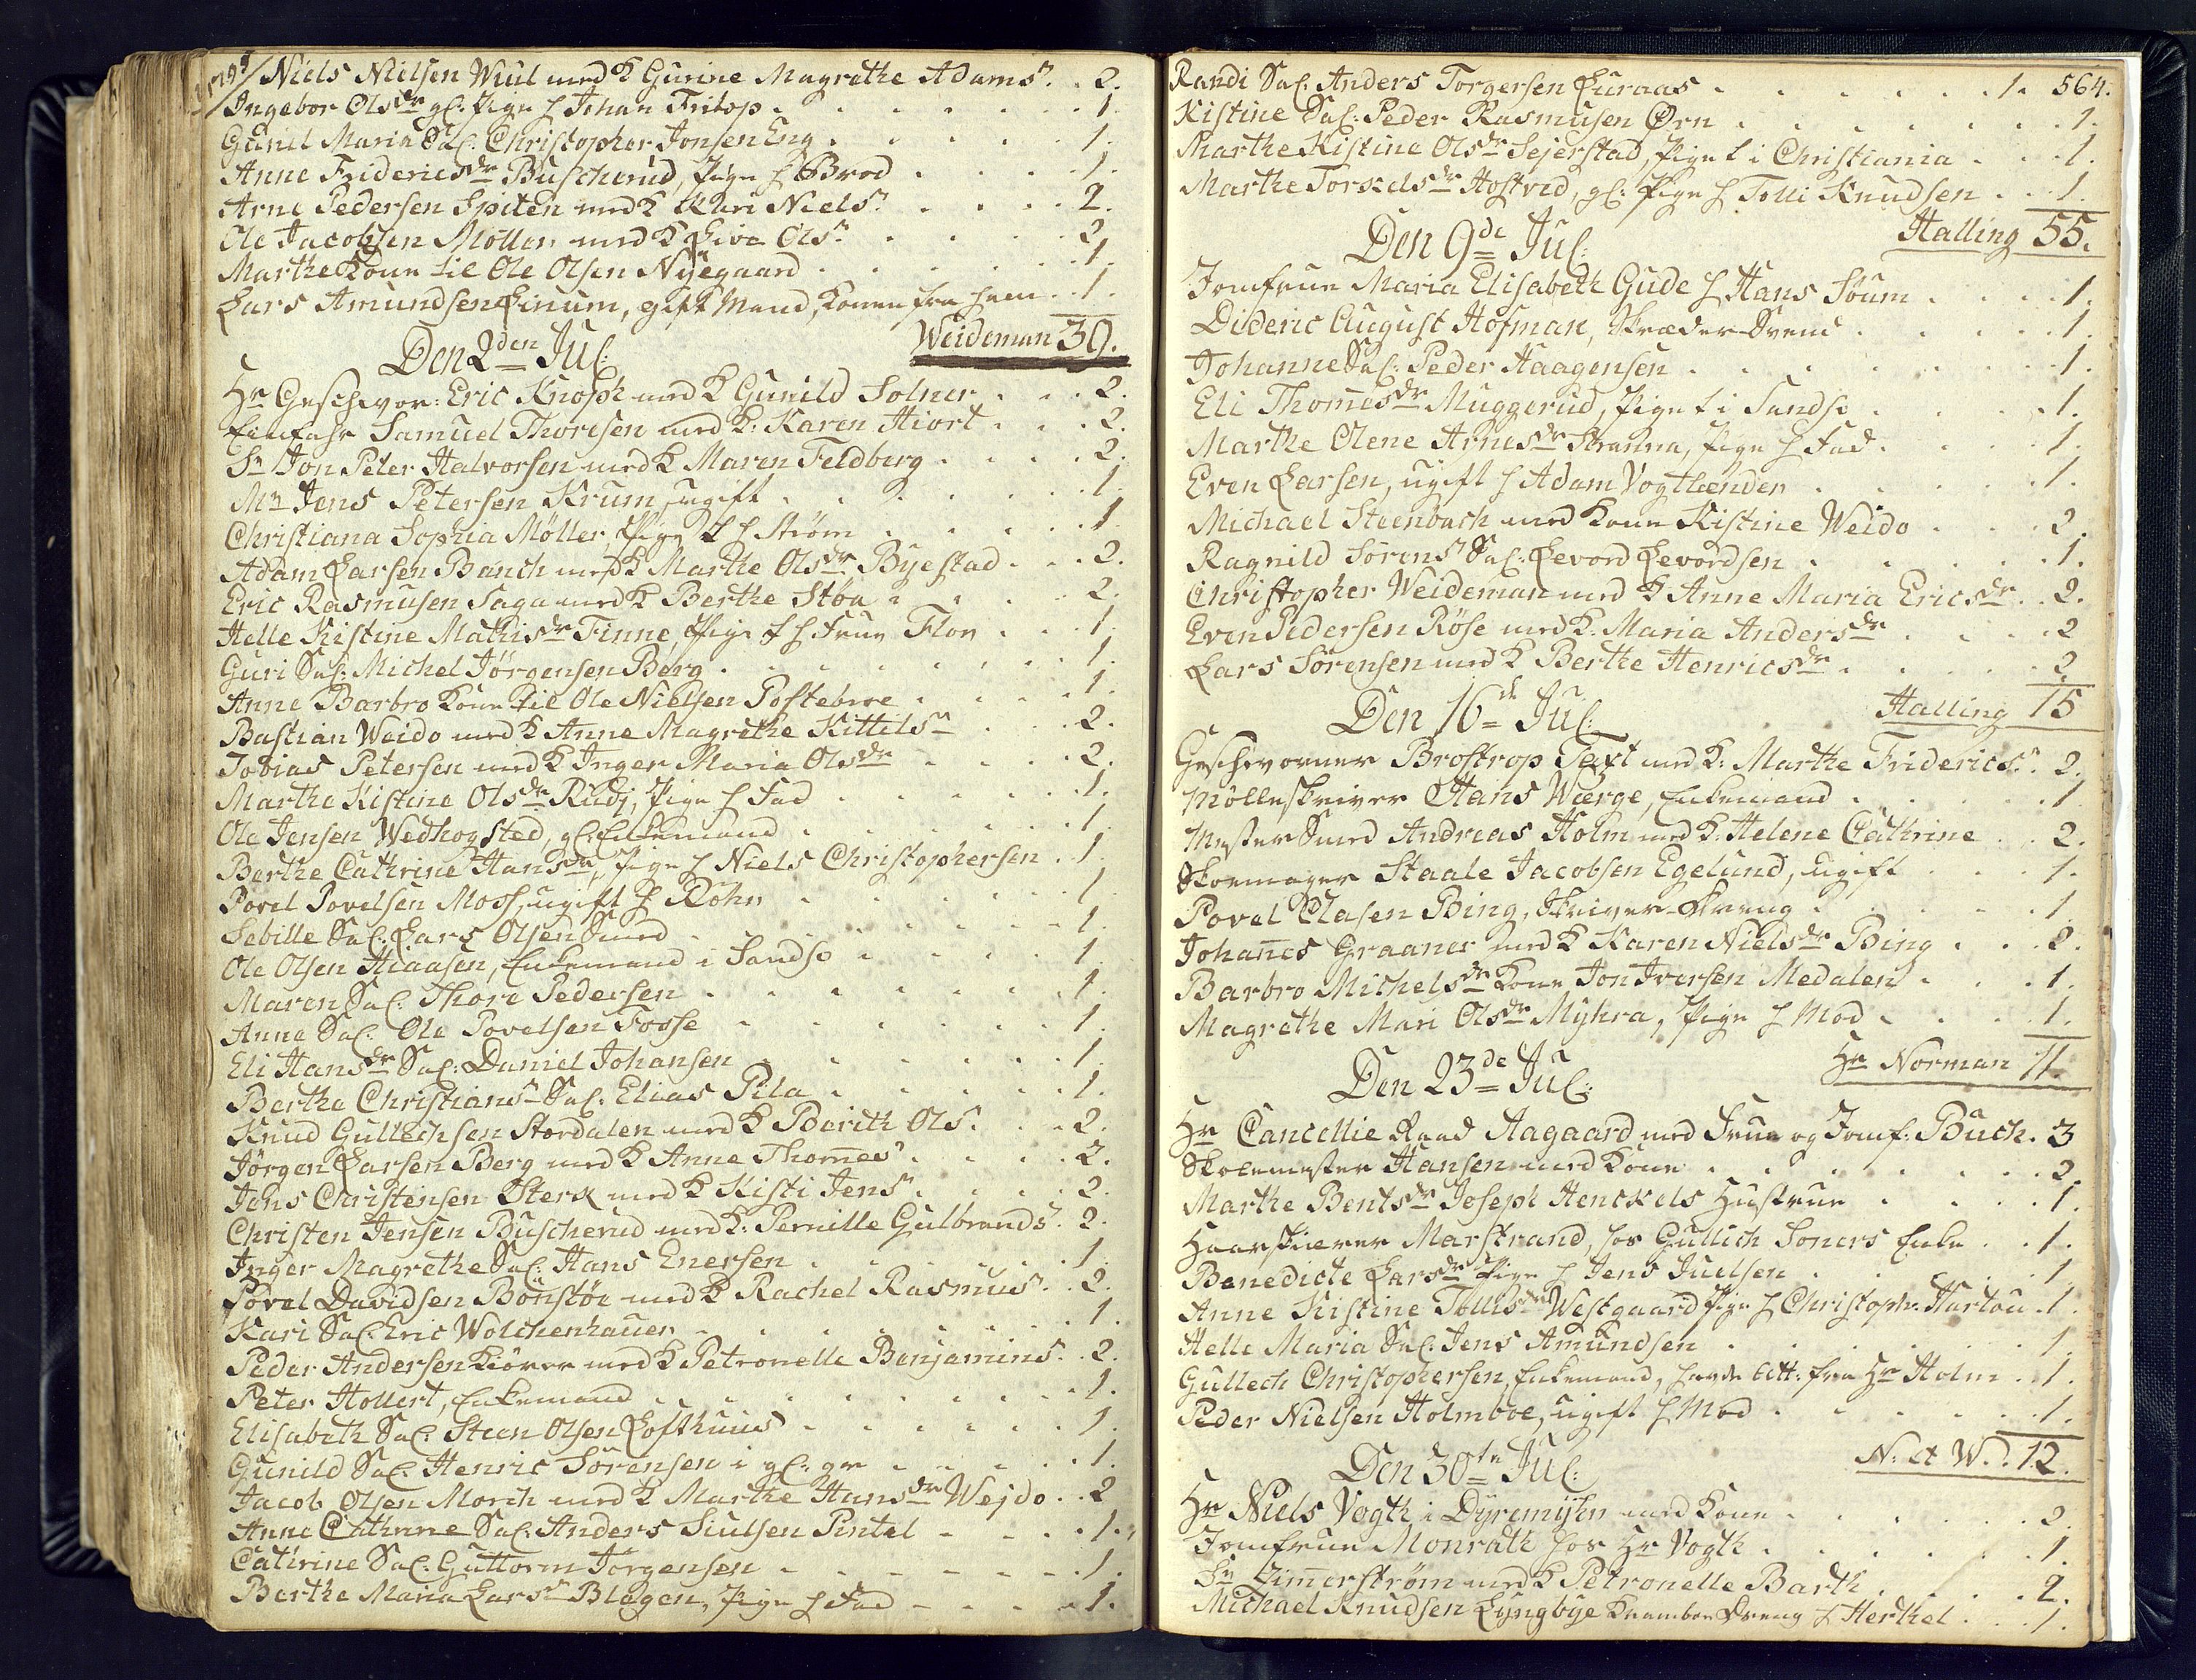 Niels Nielsen Wiul med K Gurine Magrethe Adams. 2.
Ingebor Olsdr gl: Pige h Johan Fritop 1.
Gunil Maria Sal: Christopher Jonsen Eng 1.
Anne Fridericsdr Buscherud, Pige h Brod 1.
Arne Pedersen Spiten med K Kari Niels. 2.
Ole Jacobsen Möllen med K Live Ols. 2.
Marthe Kone til Ole Olsen Nyegaard 1.
Lars Amundsen Linum, gift Mand, Konen fra ham 1.
Weideman 39.
Den 2den Jul:
Hr Geschwor: Eric Knoph med K Gunild Solner 2.
Einfahr Samuel Thoresen med K: Karen Hiort 2.
Sr Jon Peter Halvorsen med K Maren Feldberg 2.
Mr Jens Petersen Krum, ugift 1.
Christiana Sophia Möller, Pige h Strøm 1.
Adam Larsen Banch med K Marthe Olsdr Byestad 2.
Eric Rasmusen Saga med K Berthe Støa 2.
Helle Kistine Mathisdr Finne, Pige h Frue Flor 1.
Guri Sal: Michel Jörgensen Berg 1.
Anne Barbro Kone til Ole Nielsen Postebroe 1.
Bastian Weido med K Anne Magrethe Kittels 2.
Tobias Petersen med K Inger Maria Olsdr 2.
Marthe Kistine Olsdr Rudj, Pige h Fad 1.
Ole Jensen Wedhogsted, gl: Enkemand 1.
Berthe Cathrine Hansdr, Pige h Niels Christophersen 1.
Povel Povelsen Moss, ugift h Röhn 1.
Sebille Sal: Lars Olsen Smed 1.
Ole Olsen Hiaasen, Enkemand i Sandsv 1.
Maren Sal: Thore Pedersen 1.
Anne Sal: Ole Povelsen Fosse 1.
Eli Hansdr Sal: Daniel Johansen 1.
Berthe Christians Sal: Elias Pila 1.
Knud Gullechsen Stordalen med K Berith Ols. 2.
Jörgen Larsen Berg med K Anne Thomes 2.
Jens Christensen Sterk med K Kisti Jens 2.
Christen Jensen Buscherud med K: Pernille Gulbrands. 2.
Inger Magrethe Sal: Hans Enersen 1.
Povel Davidsen Bönstöe med K Rachel Rasmus. 2.
Kari Sal: Eric Wolchenhauer 1.
Peder Andersen Kiörer med K Petronelle Benjamins. 2.
Peter Hollert, Enkemand 1.
Elisabeth Sal: Steen Olsen Lofthuus 1.
Gunild Sal: Henric Sörensen i gl: gr 1.
Jacob Olsen Morch med K Marthe Hansdr Wejdo 2
Anne Cathrine Sal: Anders Siulsen Pintel 1.
Cathrine Sal: Guttorm Jörgensen 1.
Berthe Maria Lars Blegen, Pige h Fad 1.
Randi Sal: Anders Torgersen Luraas 1. 564.
Kistine Sal: Peder Rasmusen Örn 1.
Marthe Kistine Olsdr Sejerstad, Pige t i Christiania 1.
Marthe Torkelsdr Hostved, gl: Pige h Tolli Knudsen 1.
Halling 55.
Den 9de Jul:
Jomfrue Maria Elisabeth Gude h Hans Söum 1.
Dideric August Hofman, Skræder Svend 1.
Johanne Sal: Peder Haagensen 1.
Eli Thomesdr Muggerud, Pige t i Sandsv 1.
Marthe Olene Arnesdr Stranna, Pige h Fad 1.
Even Larsen, ugift h Adam Vogtlænder 1.
Michael Steenbach med Kone Kistine Weido 2.
Ragnild Sörens Sal: Levord Levordsen 1.
Christopher Weideman med K Anne Maria Ericsdr 2.
Even Pedersen Röse med K. Maria Andersdr 2
Lars Sörensen med K Berthe Henricsdr 2.
Halling 15
Den 16de Jul:
Geschworner Brostrop Text med K: Marthe Frideries. 2.
Mølleskriver Hans Wærge, Enkemand 1
Mester Smed Andreas Holm med K: Helene Cathrine 2.
Skoemager Staale Jacobsen Egelund, ugift 1.
Povel Clasen Bing, Skriver-Dreng 1.
Johannes Graaner med K Karen Nielsdr Bing 2.
Barbro Michelsdr Kone Jon Iversen Medalen 1.
Magrethe Mari Olsdr Myhra, Pige h Mod 1.
Hr Norman 11.
Den 23de Jul:
Hr Cancellie Raad Aagaard med Frue og Jomf: Buch. 3
Skolemester Hansen med Kone 2.
Marthe Bentsdr Joseph Henckels Hustrue 1.
Haarskierer Marstrand, hos Gullich Soners Enke 1.
Benedicte Larsdr Pige h Jens Juelsen 1.
Anne Kistine Tollisdr Westgaard Pige h Christoph: Hartou 1.
Helle Maria Sal: Jens Amundsen 1.
Gullech Christophersen, Enkemand, havde Att: fra Hr Holm 1.
Peder Nielsen Holmboe, ugift h Mod 1.
N. et W. 12.
Den 30te Jul:
Hr Niels Vogth i Dyremyhr med Kone 2.
Jomfrue Monrath hos Hr Vogth 1.
Sr Zimmerström med K Petronelle Barth 2.
Michael Knudsen Lyngbye Krambor Dreng h Herthel 1.